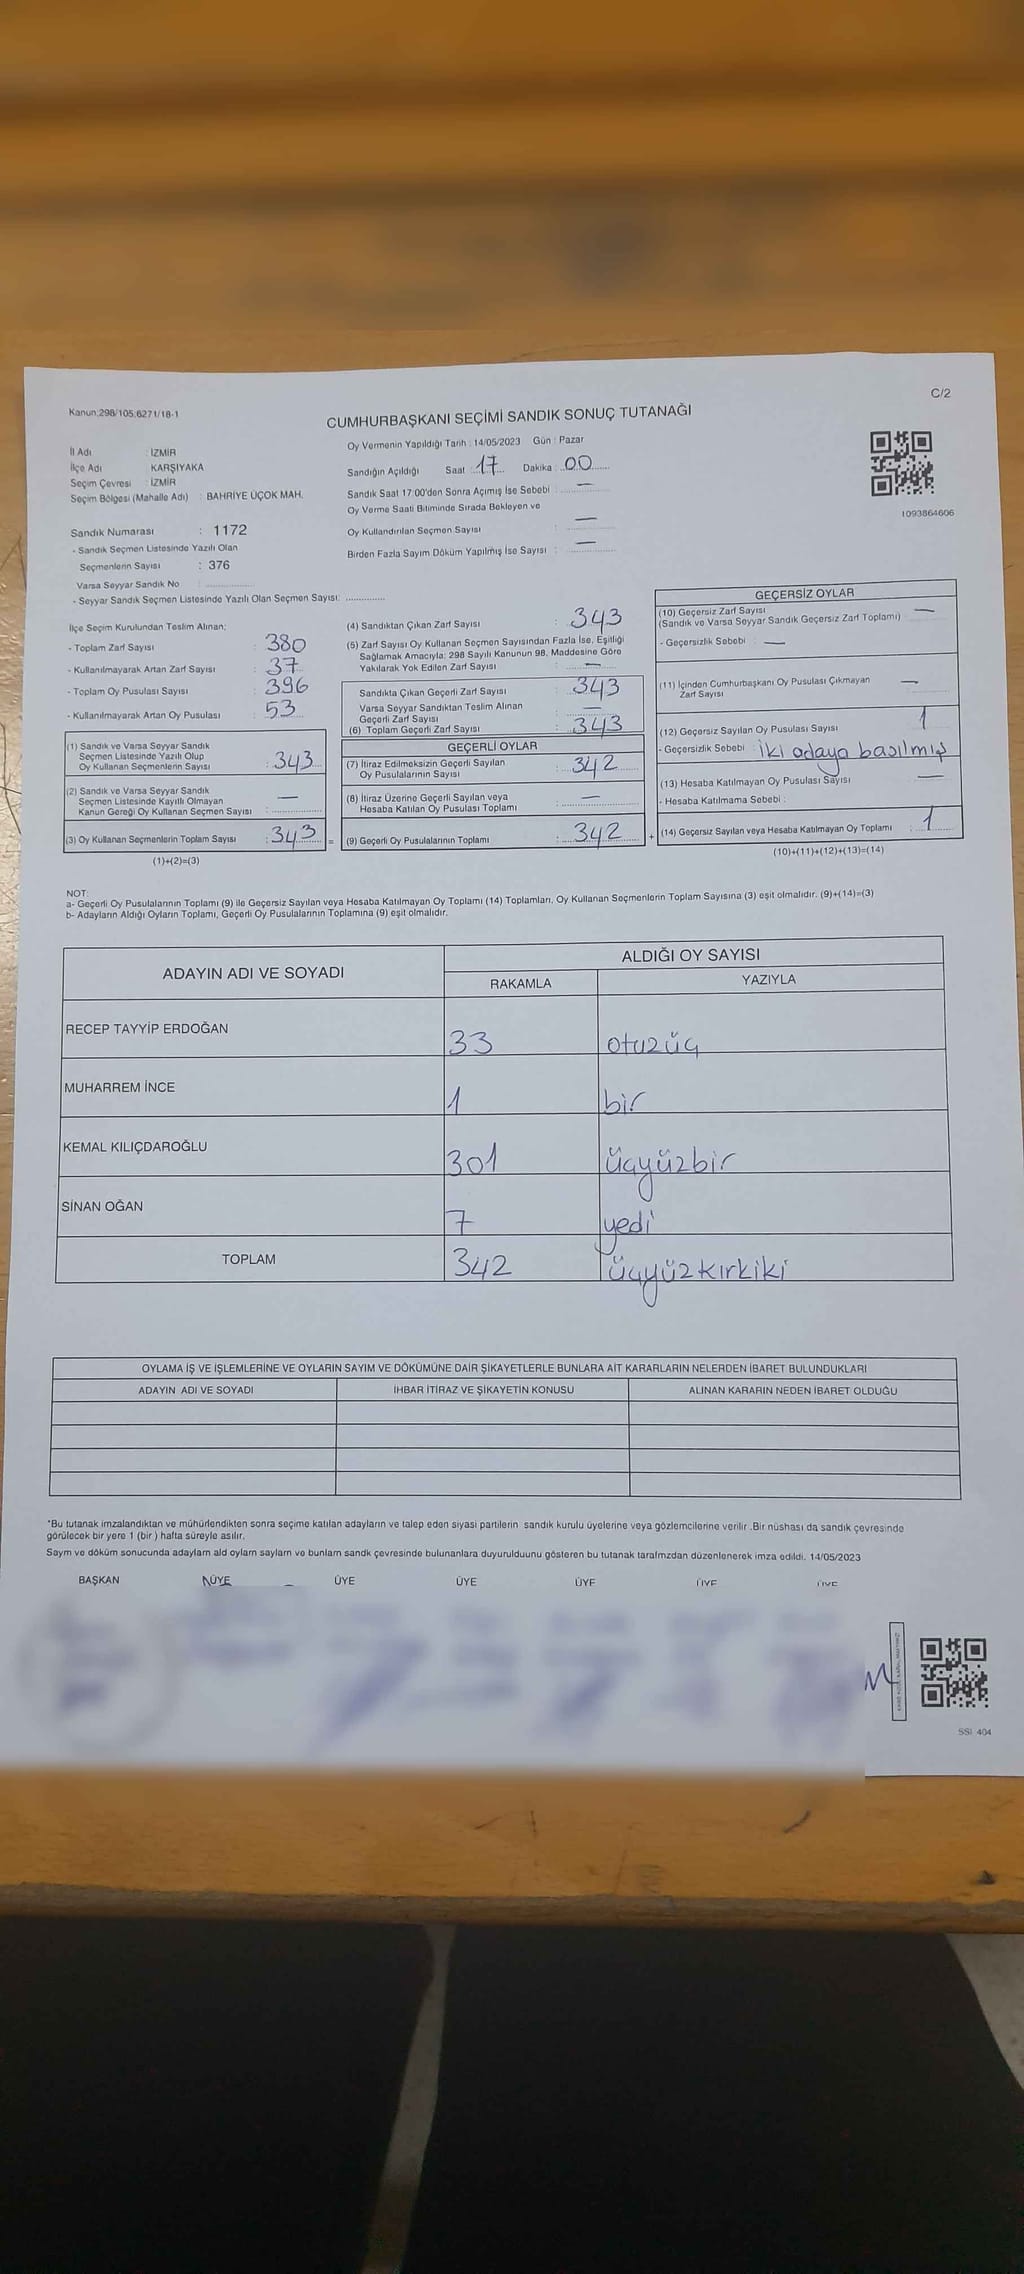 C/2
Kanun:298/105;6271/18-1
CUMHURBAŞKANI SEÇİMİ SANDIK SONUÇ TUTANAĞI
İl Adı : İZMİR
İlçe Adı KARŞIYAKA
Seçim Çevresi : İZMİR
Seçim Bölgesi (Mahalle Adı) : BAHRİYE ÜÇOK MAH.
Oy Vermenin Yapıldığı Tarih : 14/05/2023 Gün : Pazar
Sandığın Açıldığı Saat : 17 Dakika : 00
Sandık Saat 17:00'den Sonra Açımış İse Sebebi : —
Oy Verme Saati Bitiminde Sırada Bekleyen ve
Oy Kullandırılan Seçmen Sayısı : —
Birden Fazla Sayım Döküm Yapılmış İse Sayısı : —
1093864606
Sandık Numarası : 1172
- Sandık Seçmen Listesinde Yazılı Olan
Seçmenlerin Sayısı : 376
Varsa Seyyar Sandık No :
- Seyyar Sandık Seçmen Listesinde Yazılı Olan Seçmen Sayısı:
İlçe Seçim Kurulundan Teslim Alınan;
- Toplam Zarf Sayısı : 380
- Kullanılmayarak Artan Zarf Sayısı : 37
- Toplam Oy Pusulası Sayısı : 396
- Kullanılmayarak Artan Oy Pusulası : 53
(1) Sandık ve Varsa Seyyar Sandık
Seçmen Listesinde Yazılı Olup
Oy Kullanan Seçmenlerin Sayısı : 343
(2) Sandık ve Varsa Seyyar Sandık
Seçmen Listesinde Kayıtlı Olmayan
Kanun Gereği Oy Kullanan Seçmen Sayısı : —
(3) Oy Kullanan Seçmenlerin Toplam Sayısı : 343 =
(1)+(2)=(3)
(4) Sandıktan Çıkan Zarf Sayısı : 343
(5) Zarf Sayısı Oy Kullanan Seçmen Sayısından Fazla İse, Eşitliği
Sağlamak Amacıyla; 298 Sayılı Kanunun 98. Maddesine Göre
Yakılarak Yok Edilen Zarf Sayısı : —
Sandıkta Çıkan Geçerli Zarf Sayısı : 343
Varsa Seyyar Sandıktan Teslim Alınan
Geçerli Zarf Sayısı : —
(6) Toplam Geçerli Zarf Sayısı : 343
GEÇERLİ OYLAR
(7) İtiraz Edilmeksizin Geçerli Sayılan
Oy Pusulalarının Sayısı : 342
(8) İtiraz Üzerine Geçerli Sayılan veya
Hesaba Katılan Oy Pusulası Toplamı : —
(9) Geçerli Oy Pusulalarının Toplamı : 342 +
GEÇERSİZ OYLAR
(10) Geçersiz Zarf Sayısı
(Sandık ve Varsa Seyyar Sandık Geçersiz Zarf Toplamı) : —
- Geçersizlik Sebebi : —
(11) İçinden Cumhurbaşkanı Oy Pusulası Çıkmayan
Zarf Sayısı : —
(12) Geçersiz Sayılan Oy Pusulası Sayısı 1
- Geçersizlik Sebebi : iki adaya basılmış
(13) Hesaba Katılmayan Oy Pusulası Sayısı —
- Hesaba Katılmama Sebebi :
(14) Geçersiz Sayılan veya Hesaba Katılmayan Oy Toplamı : 1
(10)+(11)+(12)+(13)=(14)
NOT:
a- Geçerli Oy Pusulalarının Toplamı (9) ile Geçersiz Sayılan veya Hesaba Katılmayan Oy Toplamı (14) Toplamları, Oy Kullanan Seçmenlerin Toplam Sayısına (3) eşit olmalıdır. (9)+(14)=(3)
b- Adayların Aldığı Oyların Toplamı, Geçerli Oy Pusulalarının Toplamına (9) eşit olmalıdır.
ADAYIN ADI VE SOYADI ALDIĞI OY SAYISI
RAKAMLA YAZIYLA
RECEP TAYYİP ERDOĞAN 33 otuzüç
MUHARREM İNCE 1 bir
KEMAL KILIÇDAROĞLU 301 üçyüzbir
SİNAN OĞAN 7 yedi
TOPLAM 342 üçyüzkırkiki
OYLAMA İŞ VE İŞLEMLERİNE VE OYLARIN SAYIM VE DÖKÜMÜNE DAİR ŞİKAYETLERLE BUNLARA AİT KARARLARIN NELERDEN İBARET BULUNDUKLARI
ADAYIN ADI VE SOYADI İHBAR İTİRAZ VE ŞİKAYETİN KONUSU ALINAN KARARIN NEDEN İBARET OLDUĞU
*Bu tutanak imzalandıktan ve mühürlendikten sonra seçime katılan adayların ve talep eden siyasi partilerin sandık kurulu üyelerine veya gözlemcilerine verilir .Bir nüshası da sandık çevresinde
görülecek bir yere 1 (bir ) hafta süreyle asılır.
Saym ve döküm sonucunda adaylarn ald oylarn saylarn ve bunlarn sandk çevresinde bulunanlara duyurulduunu gösteren bu tutanak tarafmzdan düzenlenerek imza edildi. 14/05/2023
BAŞKAN ÜYE ÜYE ÜYE ÜYE ÜYE ÜYE
SSI 404